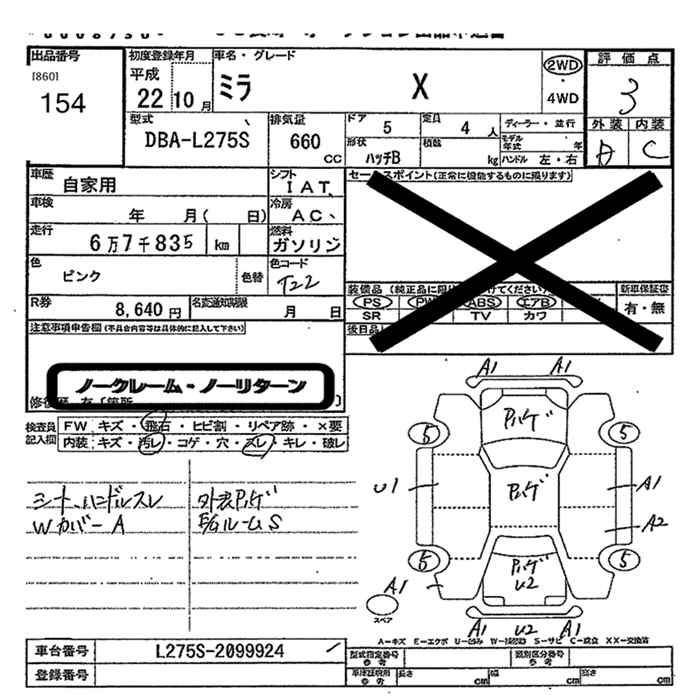 出品番号 初度登録年月 車名・グレード 評価点
[860] 平成 2WD
154 22年10月 ミラ X ・ 3
4WD
型式 排気量 ドア 5 定員 4人 ディーラー・並行 外装 内装
DBA-L275S 660cc 形状 ハッチB 積数 kg モデル年式 年 A C
ハンドル 左・右
車歴 自家用 シフト IAT、 セールスポイント(正常に機能するものに限ります)
車検 年 月( 日) 冷房 AC、
走行 6万7千835 km 燃料 ガソリン
色 ピンク 色替 色コード T22 装備品(純正品に限り 付けてください) 新車保証書
PS PW ABS エアB 有・無
R券 8,640円 名変通知期限 月 日 SR TV カワ
注意事項申告欄(不具合内容等は具体的に記入して下さい) 後日品
ノークレーム・ノーリターン
検査員記入欄 FW キズ・飛石・ヒビ割・リペア跡・×要
内装 キズ・汚レ・コゲ・穴・スレ・キレ・破レ
シート、ハンドルスレ 外装Pハゲ
Wカバー A E/GルームS
A1 A1
Pハゲ
5 5
U1 Pハゲ A1
A2
5 Pハゲ 5
U2
A1
スペア A1 U2 A1
A-キズ E-エクボ U-凹み W-補修跡 S-サビ C-腐食 XX-交換済
車台番号 L275S-2099924 型式指定番号 参考 類別区分番号 参考
登録番号 車庫証明用 参考 長さ cm 幅 cm 高さ cm